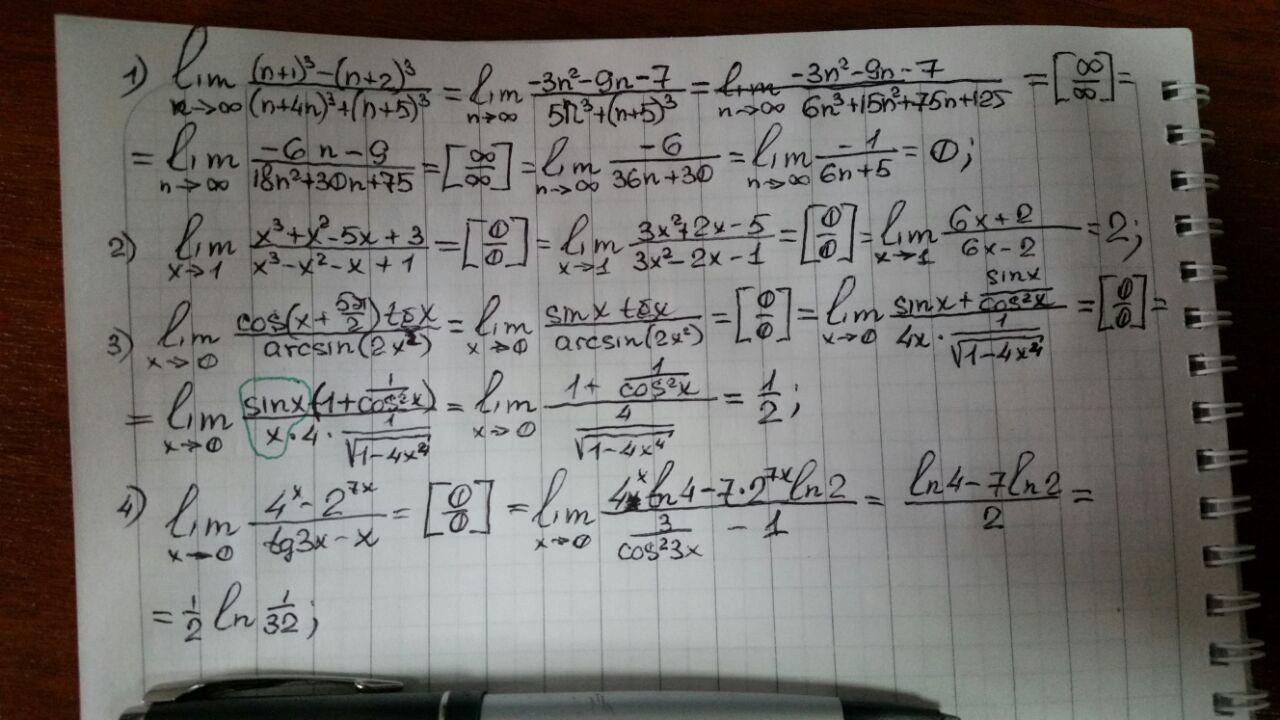 1) lim n→∞ ((n+1)³-(n+2)³)/((n+4n)³+(n+5)³) = lim n→∞ (-3n²-9n-7)/(5n³+(n+5)³) = lim n→∞ (-3n²-9n-7)/(6n³+15n²+75n+125) = [∞/∞] =
= lim n→∞ (-6n-9)/(18n²+30n+75) = [∞/∞] = lim n→∞ (-6)/(36n+30) = lim n→∞ (-1)/(6n+5) = 0;
2) lim x→1 (x³+x²-5x+3)/(x³-x²-x+1) = [0/0] = lim x→1 (3x²+2x-5)/(3x²-2x-1) = [0/0] = lim x→1 (6x+2)/(6x-2) = 2;
3) lim x→0 (cos(x+5π/2)tgx)/(arcsin(2x²)) = lim x→0 (sinx tgx)/(arcsin(2x²)) = [0/0] = lim x→0 (sinx+sinx/cos²x)/(4x·1/√(1-4x⁴)) = [0/0] =
= lim x→0 (sinx(1+1/cos²x))/(x·4·1/√(1-4x⁴)) = lim x→0 (1+1/cos²x)/(4/√(1-4x⁴)) = 1/2;
4) lim x→0 (4ˣ-2⁷ˣ)/(tg3x-x) = [0/0] = lim x→0 (4ˣln4-7·2⁷ˣln2)/(3/cos²3x - 1) = (ln4-7ln2)/2 =
= 1/2 ln 1/32;